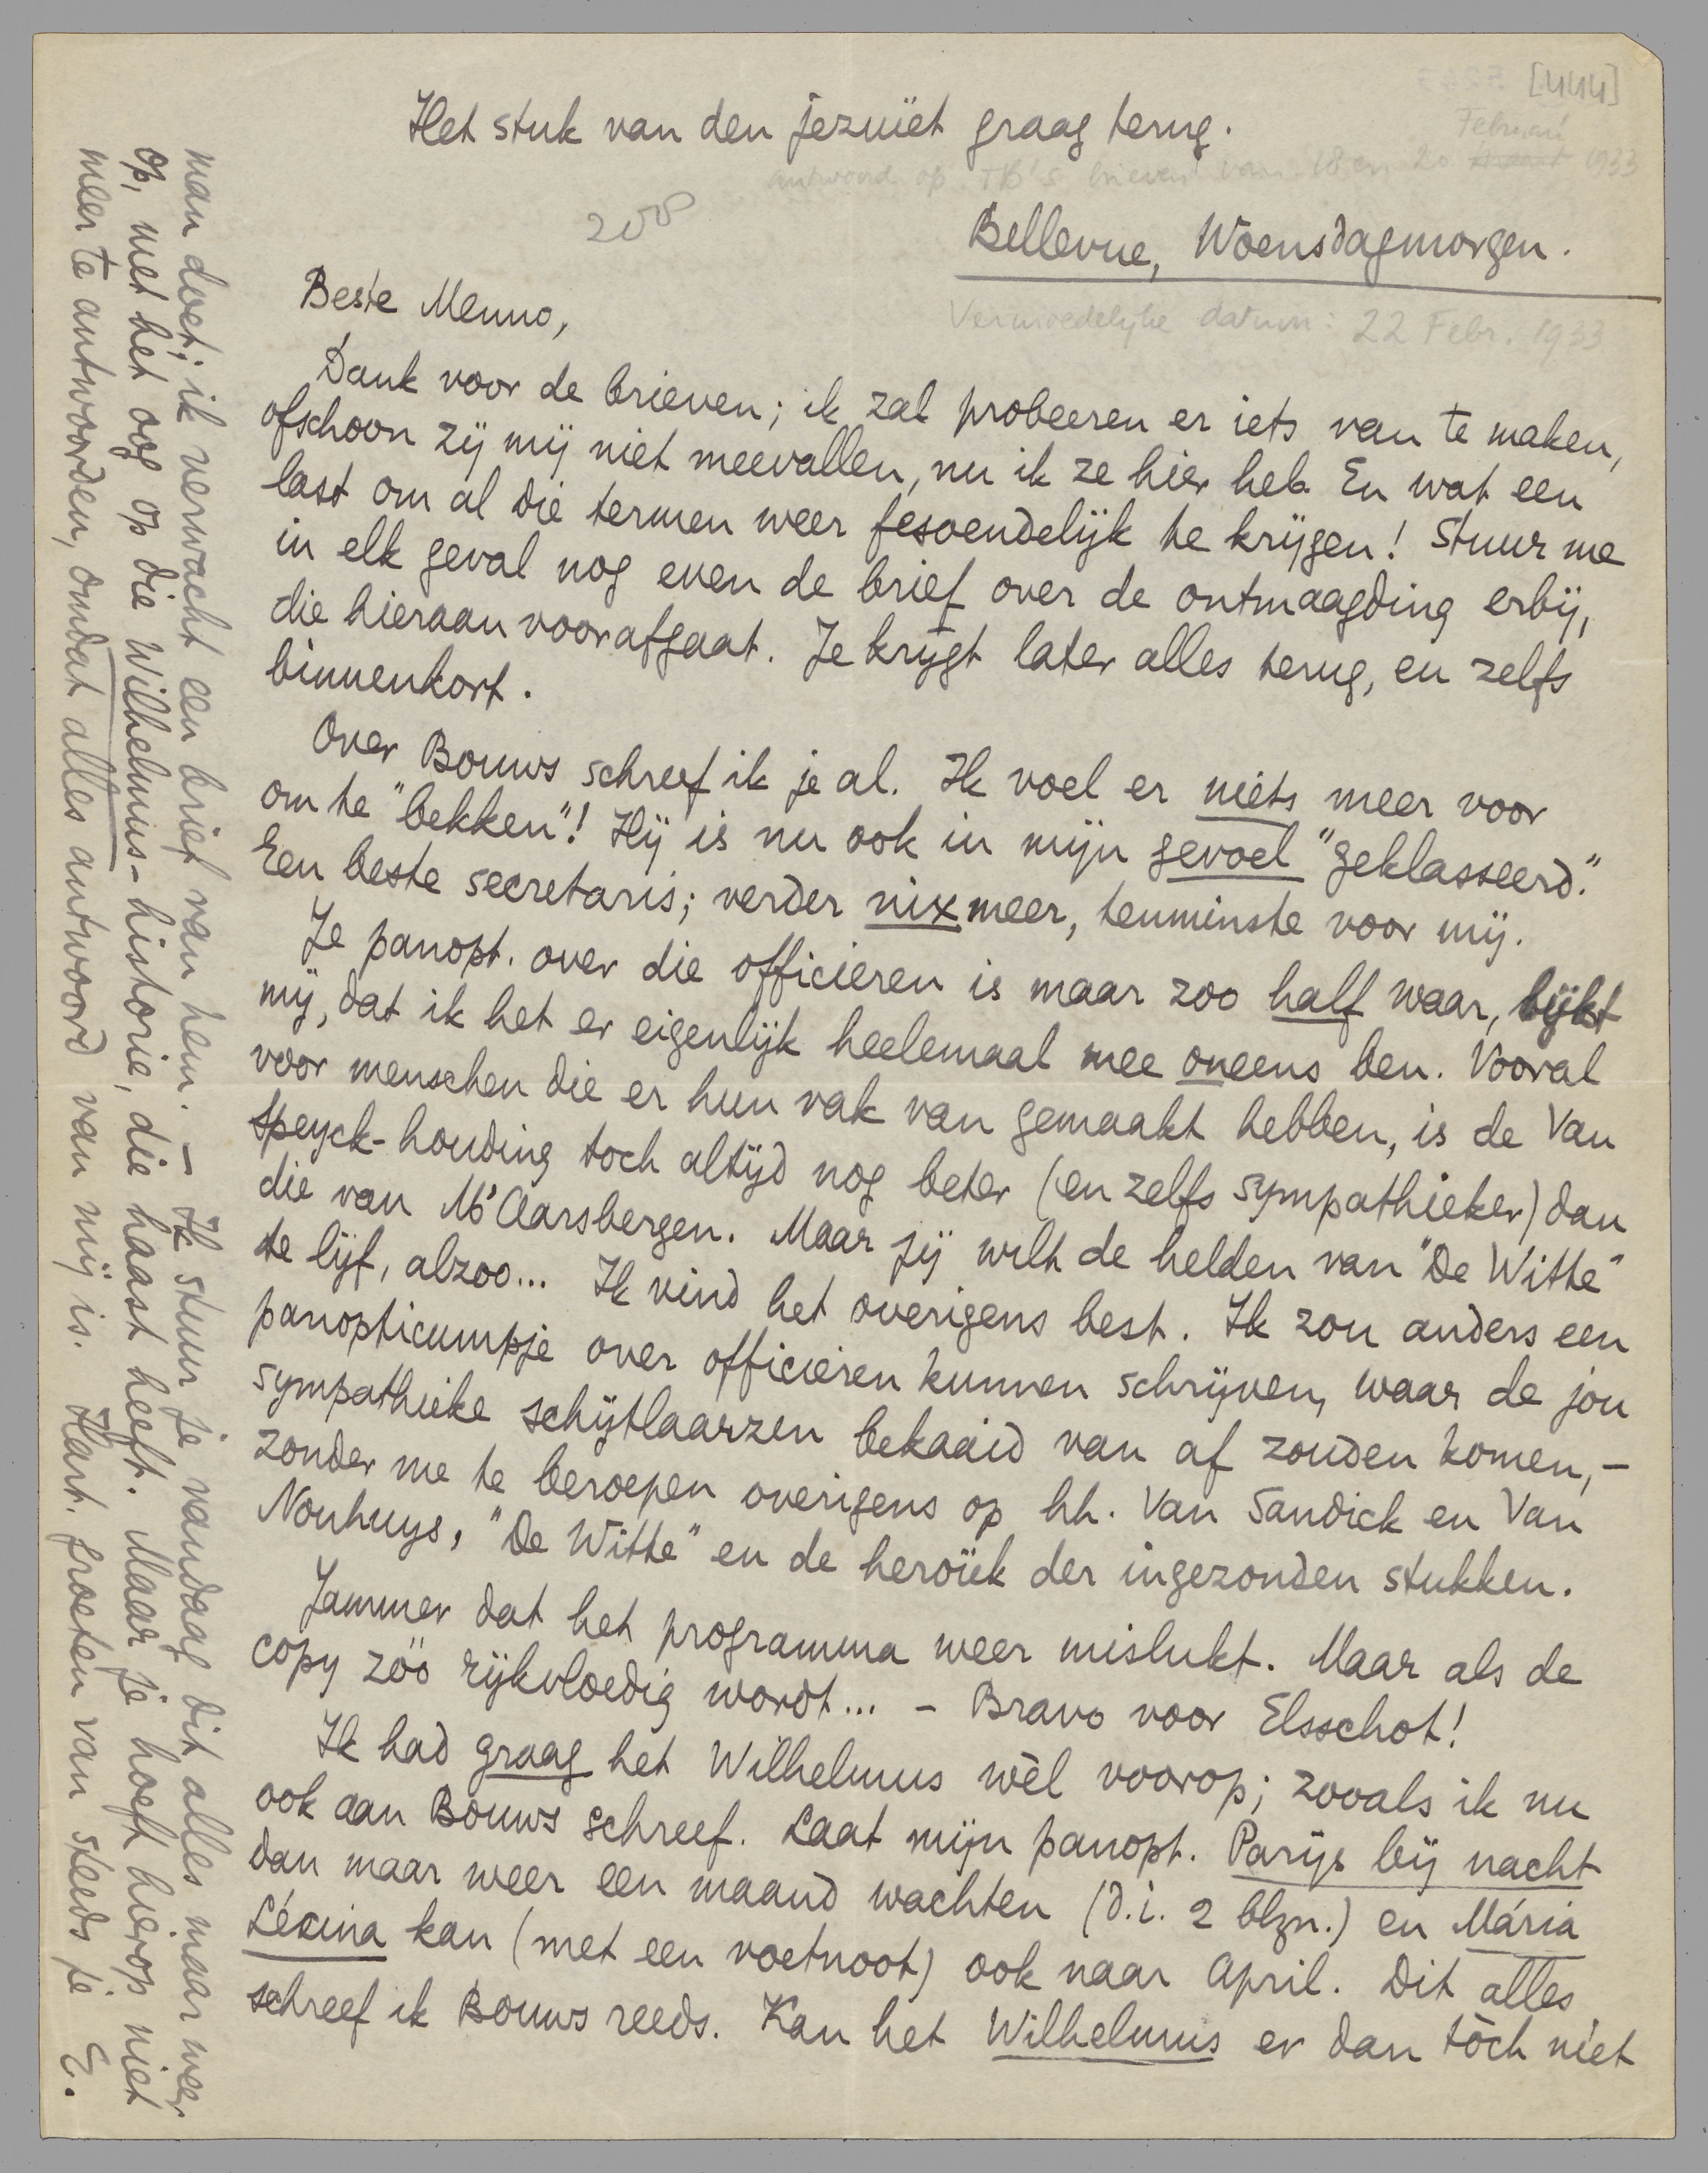 [444]
Het stuk van den jezuïet graag terug.
Februari
antwoord op TB's brieven van 18 en 20 maart 1933
200
Bellevue, Woensdagmorgen.
Vermoedelijke datum: 22 Febr. 1933
Beste Menno,
Dank voor de brieven; ik zal probeeren er iets van te maken,
ofschoon zij mij niet meevallen, nu ik ze hier heb. En wat een
last om al die termen weer fesoendelijk te krijgen! Stuur me
in elk geval nog even de brief over de ontmaagding erbij,
die hieraan voorafgaat. Je krijgt later alles terug, en zelfs
binnenkort.
Over Bouws schreef ik je al. Ik voel er niets meer voor
om te "bekken"! Hij is nu ook in mijn gevoel "geklasseerd."
Een beste secretaris; verder nix meer, tenminste voor mij.
Je panopt. over die officieren is maar zoo half waar, lijkt
mij, dat ik het er eigenlijk heelemaal mee oneens ben. Vooral
voor menschen die er hun vak van gemaakt hebben, is de Van
Speyck-houding toch altijd nog beter (en zelfs sympathieker) dan
die van Mr Aarsbergen. Maar jij wilt de helden van "De Witte"
te lijf, alzoo... Ik vind het overigens best. Ik zou anders een
panopticumpje over officieren kunnen schrijven, waar de jou
sympathieke schijtlaarzen bekaaid van af zouden komen, –
zonder me te beroepen overigens op hh. Van Sandick en Van
Nouhuys, "De Witte" en de heroïek der ingezonden stukken.
Jammer dat het programma weer mislukt. Maar als de
copy zóó rijkvloedig wordt... – Bravo voor Elsschot!
Ik had graag het Wilhelmus wèl voorop; zooals ik nu
ook aan Bouws schreef. Laat mijn panopt. Parijs bij nacht
dan maar weer een maand wachten (d.i. 2 blzn.) en Mária
Lécina kan (met een voetnoot) ook naar April. Dit alles
schreef ik Bouws reeds. Kan het Wilhelmus er dan tòch niet
man doet; ik verwacht een brief van hem. – Ik stuur je vandaag dit alles maar weer
op, met het oog op die Wilhelmus-historie, die haast heeft. Maar je hoeft hierop niet
meer te antwoorden, omdat alles antwoord van mij is. Hart. groeten van steeds je E.